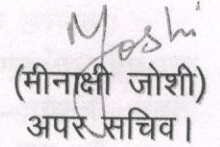 Joshi
(मीनाक्षी जोशी)
अपर सचिव।